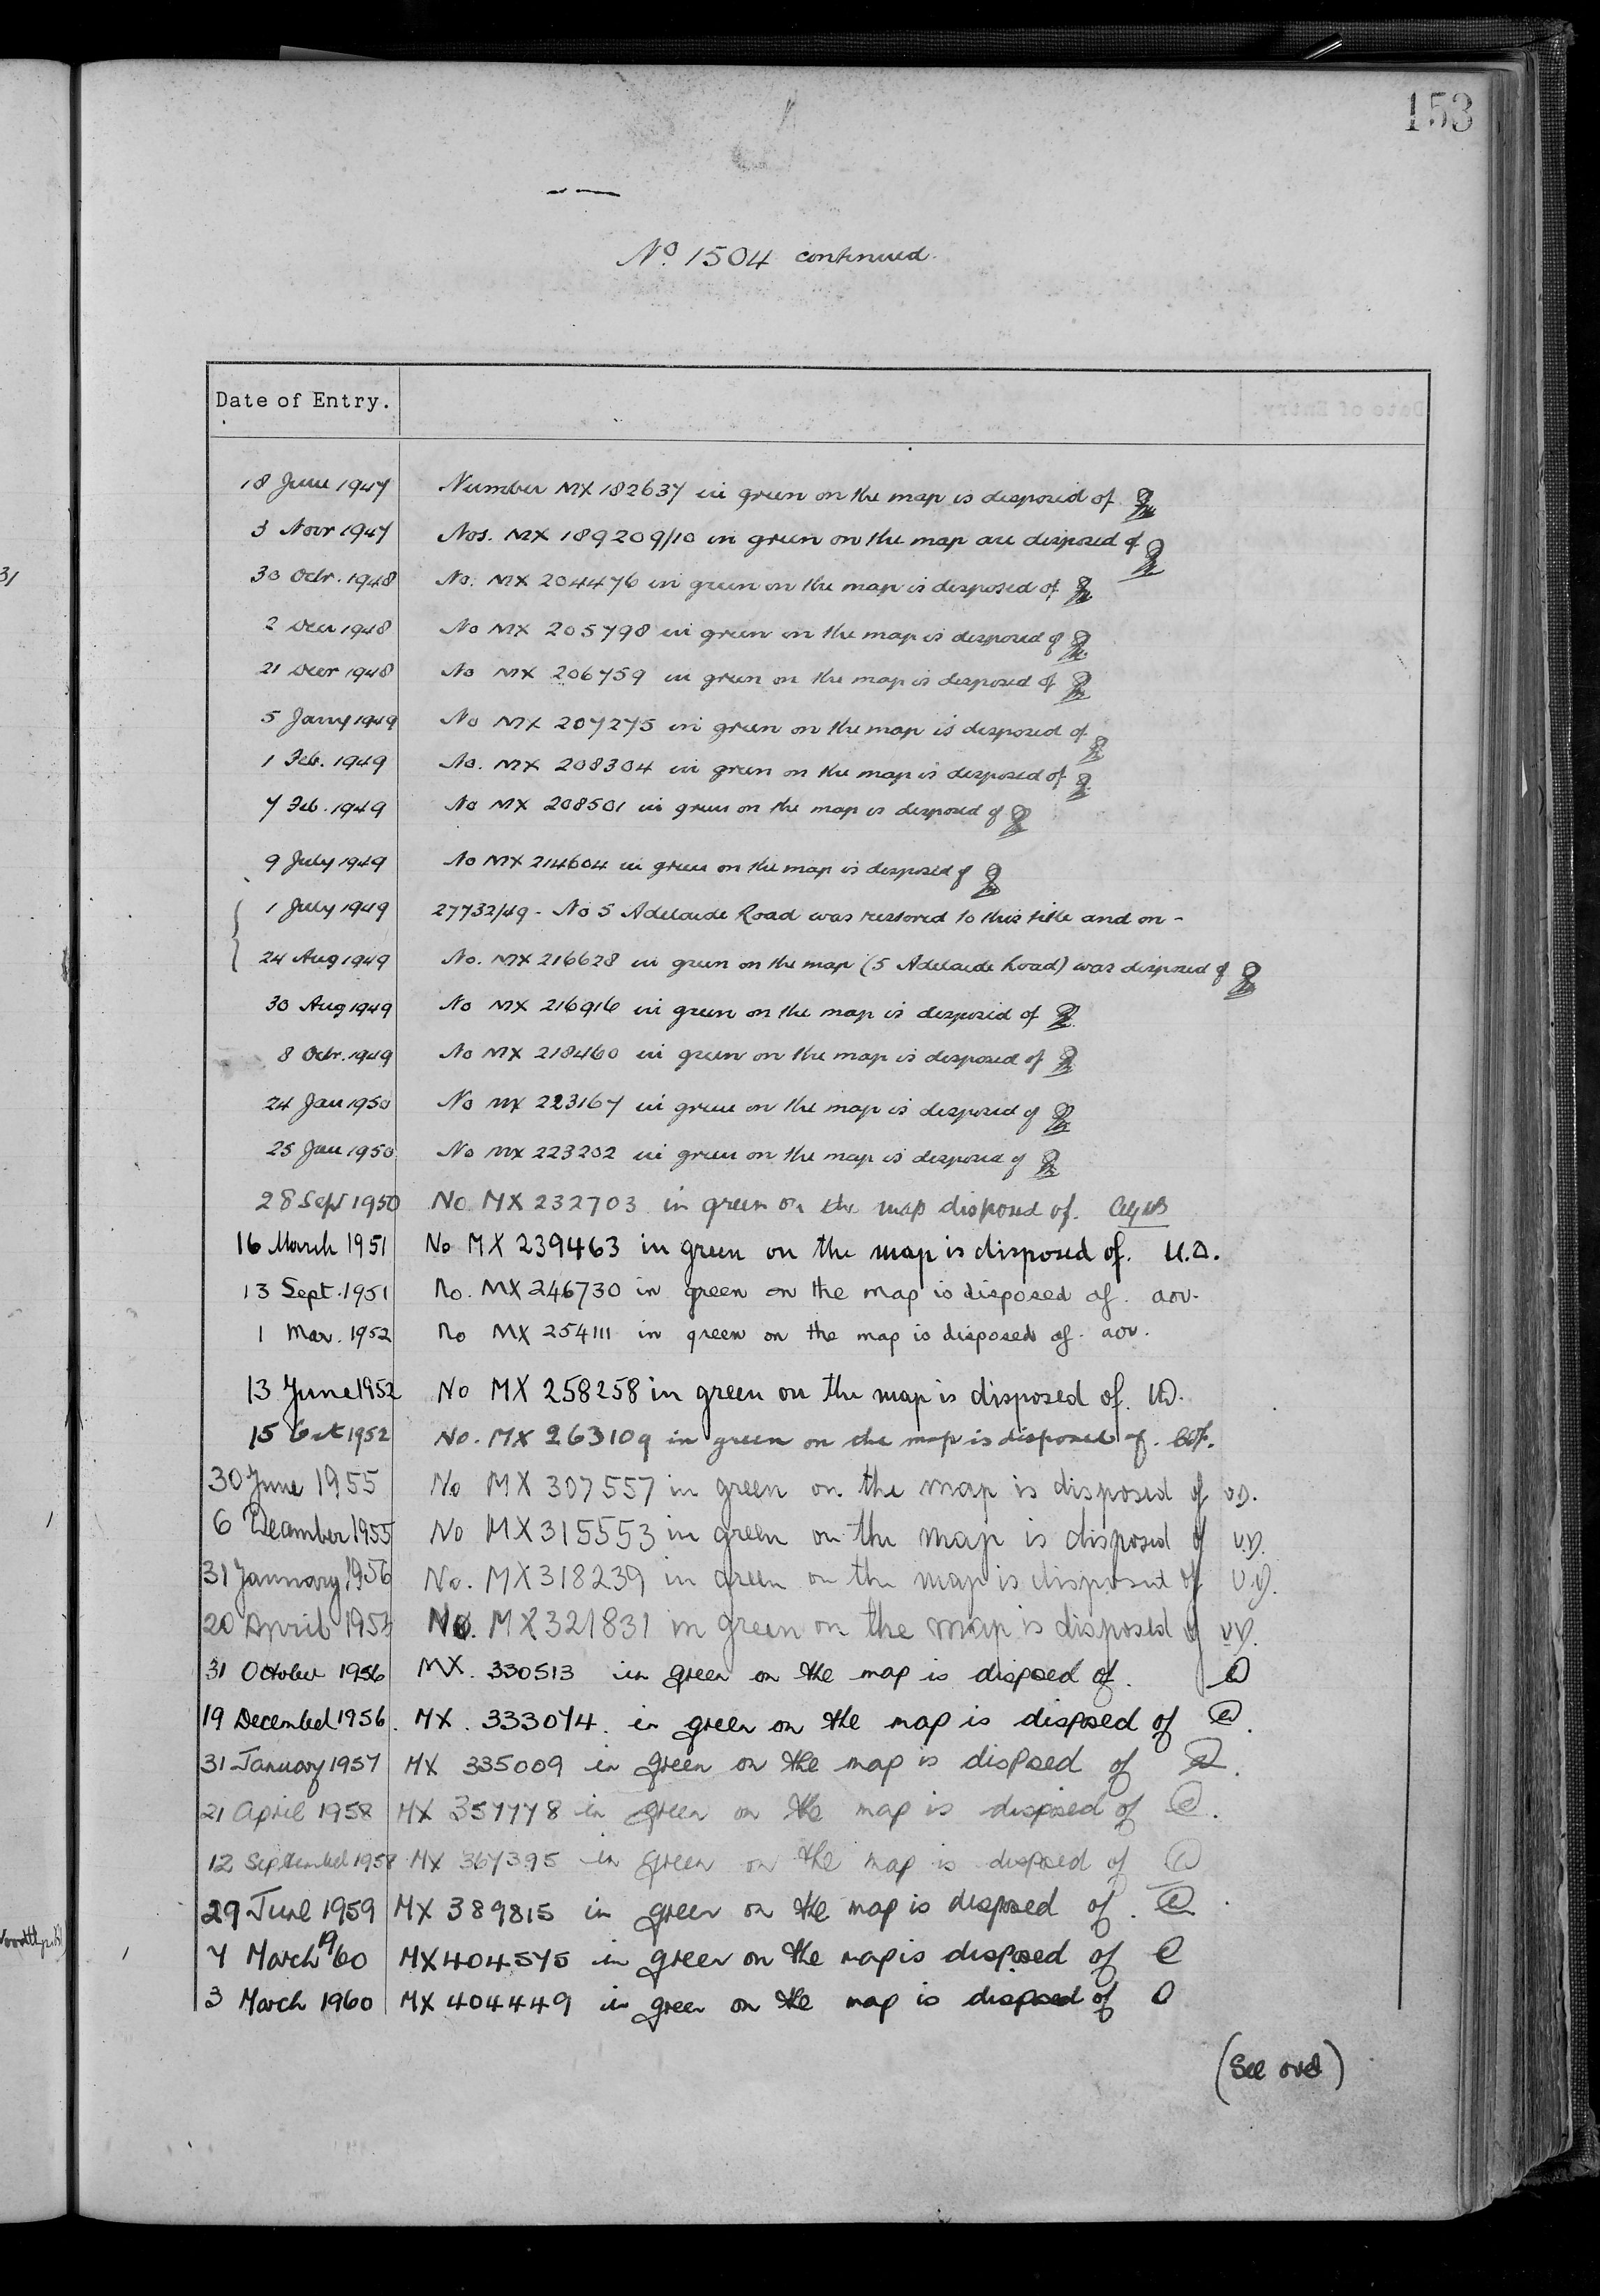 153
No. 1504 continued.
Date of Entry.
18 June 1947 Number MX 182637 in green on the map is disposed of
3 Novr 1947 Nos. MX 189209/10 in green on the map are disposed of
30 Octr. 1948 No. MX 204476 in green on the map is disposed of
2 Decr 1948 No MX 205798 in green on the map is disposed of
21 Decr 1948 No MX 206759 in green on the map is disposed of
5 Jany 1949 No MX 207275 in green on the map is disposed of
1 Feb. 1949 No. MX 208304 in green on the map is disposed of
7 Feb. 1949 No MX 208501 in green on the map is disposed of
9 July 1949 No MX 214604 in green on the map is disposed of
1 July 1949 27732/49 - No 5 Adelaide Road was restored to this title and on -
24 Aug 1949 No. MX 216628 in green on the map (5 Adelaide Road) was disposed of
30 Aug 1949 No MX 216916 in green on the map is disposed of
8 Octr. 1949 No MX 218460 in green on the map is disposed of
24 Jan 1950 No MX 223167 in green on the map is disposed of
25 Jan 1950 No MX 223202 in green on the map is disposed of
28 Sept 1950 No MX 232703 in green on the map disposed of.
16 March 1951 No MX 239463 in green on the map is disposed of. U.D.
13 Sept. 1951 No. MX 246730 in green on the map is disposed of. aov.
1 Mar. 1952 No MX 254111 in green on the map is disposed of. aov.
13 June 1952 No MX 258258 in green on the map is disposed of. UD.
15 Oct 1952 No. MX 263109 in green on the map is disposed of.
30 June 1955 No MX 307557 in green on the map is disposed of v.D.
6 December 1955 No MX 315553 in green on the map is disposed of v.D.
31 January, 1956 No. MX 318239 in green on the map is disposed of v.D.
20 April No. MX 321831 in green on the map is disposed of v.D.
31 October 1956 MX. 330513 in green on the map is disposed of.
19 December 1956. MX. 333074. in green on the map is disposed of
31 January 1957 MX 335009 in green on the map is disposed of
21 April 1958 MX 357778 in green on the map is disposed of
12 September 1958 MX 367395 in green on the map is disposed of
29 June 1959 MX 389815 in green on the map is disposed of.
7 March 19/60 MX 404575 in green on the map is disposed of
3 March 1960 MX 404449 in green on the map is disposed of
(See over)